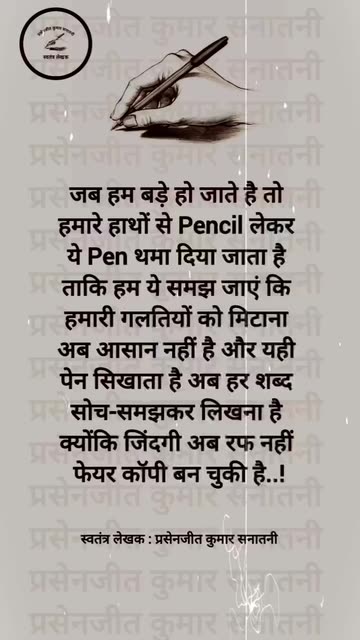 प्रसेनजीत कुमार सनातनी
स्वतंत्र लेखक
जब हम बड़े हो जाते है तो
हमारे हाथों से Pencil लेकर
ये Pen थमा दिया जाता है
ताकि हम ये समझ जाएं कि
हमारी गलतियों को मिटाना
अब आसान नहीं है और यही
पेन सिखाता है अब हर शब्द
सोच-समझकर लिखना है
क्योंकि जिंदगी अब रफ नहीं
फेयर कॉपी बन चुकी है..!
स्वतंत्र लेखक : प्रसेनजीत कुमार सनातनी